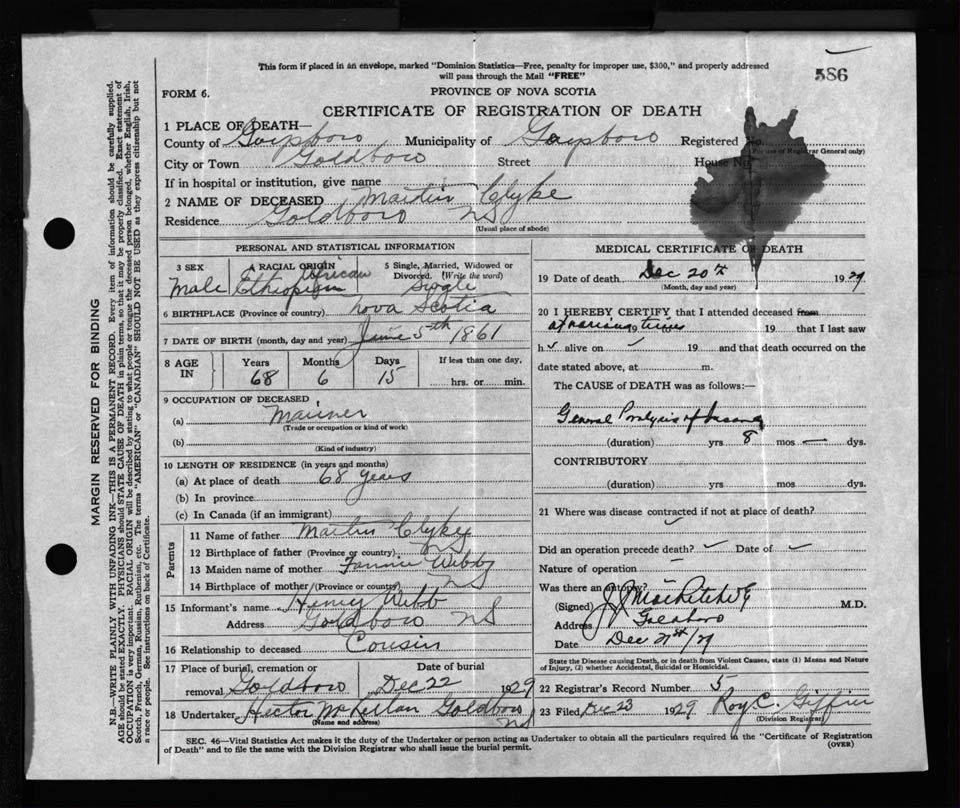 586
This form if placed in an envelope, marked "Dominion Statistics—Free, penalty for improper use, $300," and properly addressed
will pass through the Mail "FREE"
FORM 6.
PROVINCE OF NOVA SCOTIA
CERTIFICATE OF REGISTRATION OF DEATH
1 PLACE OF DEATH—
County of Guysboro Municipality of Guysboro Registered No.
(For use of Registrar General only)
City or Town Goldboro Street House No.
If in hospital or institution, give name
2 NAME OF DECEASED Martin Clyke
Residence Goldboro NS
(Usual place of abode)
PERSONAL AND STATISTICAL INFORMATION
3 SEX
Male
4 RACIAL ORIGIN
African
Ethiopian
5 Single, Married, Widowed or
Divorced. (Write the word)
Single
6 BIRTHPLACE (Province or country) Nova Scotia
7 DATE OF BIRTH (month, day and year) June 5th 1861
8 AGE IN
Years Months Days If less than one day,
68 6 15 hrs. or min.
9 OCCUPATION OF DECEASED
(a) Mariner
(Trade or occupation or kind of work)
(b)
(Kind of industry)
10 LENGTH OF RESIDENCE (in years and months)
(a) At place of death 68 years
(b) In province
(c) In Canada (if an immigrant)
Parents
11 Name of father Martin Clyke
12 Birthplace of father (Province or country) NS
13 Maiden name of mother Fannie Webb
14 Birthplace of mother (Province or country) NS
15 Informant's name Henry Webb
Address Goldboro NS
16 Relationship to deceased Cousin
17 Place of burial, cremation or removal Goldboro
Date of burial
Dec 22 1929
18 Undertaker Hector McKellan Goldboro NS
(Name and address)
MEDICAL CERTIFICATE OF DEATH
19 Date of death Dec 20th 1929
(Month, day and year)
20 I HEREBY CERTIFY that I attended deceased from
at various times 19 that I last saw
h alive on 19 and that death occurred on the
date stated above, at m.
The CAUSE of DEATH was as follows:—
General Paralysis of Insane
(duration) yrs 8 mos — dys.
CONTRIBUTORY
(duration) yrs. mos. dys.
21 Where was disease contracted if not at place of death?
Did an operation precede death? Date of
Nature of operation
Was there an autopsy?
(Signed) M.D.
Address Goldboro
Date Dec 21st/29
State the Disease causing Death, or in death from Violent Causes, state (1) Means and Nature
of Injury, (2) whether Accidental, Suicidal or Homicidal.
22 Registrar's Record Number 5
23 Filed Dec 23 1929 Roy C. Giffin
(Division Registrar)
SEC. 46—Vital Statistics Act makes it the duty of the Undertaker or person acting as Undertaker to obtain all the particulars required in the "Certificate of Registration
of Death" and to file the same with the Division Registrar who shall issue the burial permit.
(OVER)
MARGIN RESERVED FOR BINDING
N.B.—WRITE PLAINLY WITH UNFADING INK—THIS IS A PERMANENT RECORD. Every item of information should be carefully supplied.
AGE should be stated EXACTLY. PHYSICIANS should STATE CAUSE OF DEATH in plain terms, so that it may be properly classified. Exact statement of
OCCUPATION is very important. RACIAL ORIGIN will be described by stating to what people or tongue the deceased person belonged, whether English, Irish,
Scotch, French, German, Russian, Ruthenian, etc. The terms "AMERICAN" or "CANADIAN" SHOULD NOT BE USED as they express citizenship but not
a race or people. See instructions on back of Certificate.